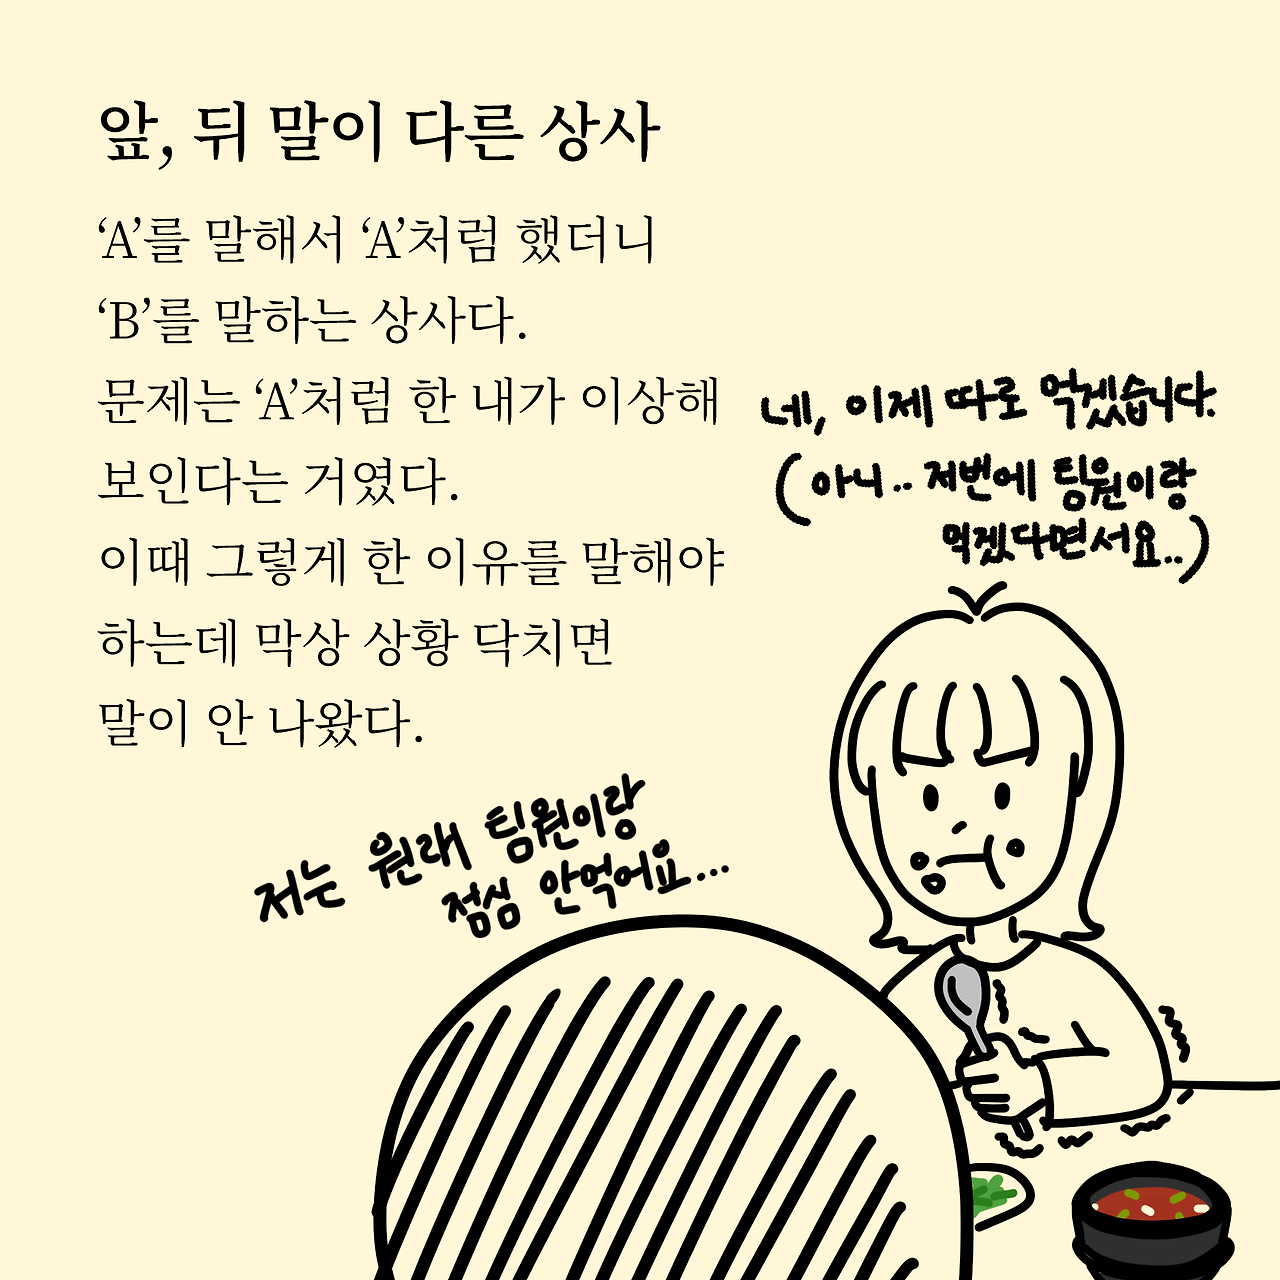 앞, 뒤 말이 다른 상사
‘A’를 말해서 ‘A’처럼 했더니
‘B’를 말하는 상사다.
문제는 ‘A’처럼 한 내가 이상해
보인다는 거였다.
이때 그렇게 한 이유를 말해야
하는데 막상 상황 닥치면
말이 안 나왔다.
네, 이제 따로 먹겠습니다.
(아니.. 저번에 팀원이랑
먹겠다면서요..)
저는 원래 팀원이랑
점심 안먹어요...